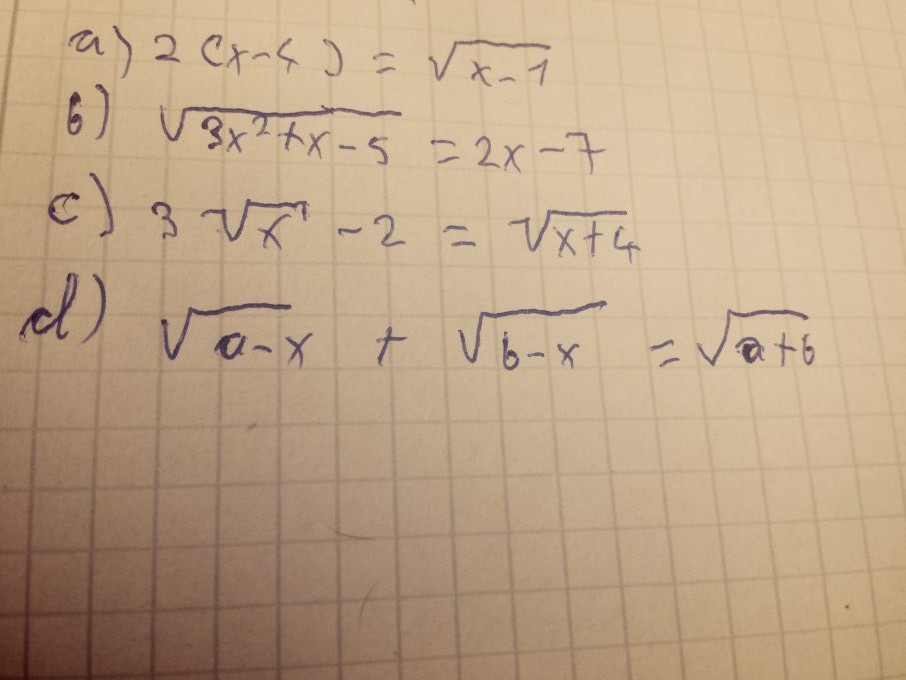 a) 2(x-4) = √x-1
b) √3x²+x-5 = 2x-7
c) 3 √x - 2 = √x+4
d) √a-x + √b-x = √a+b